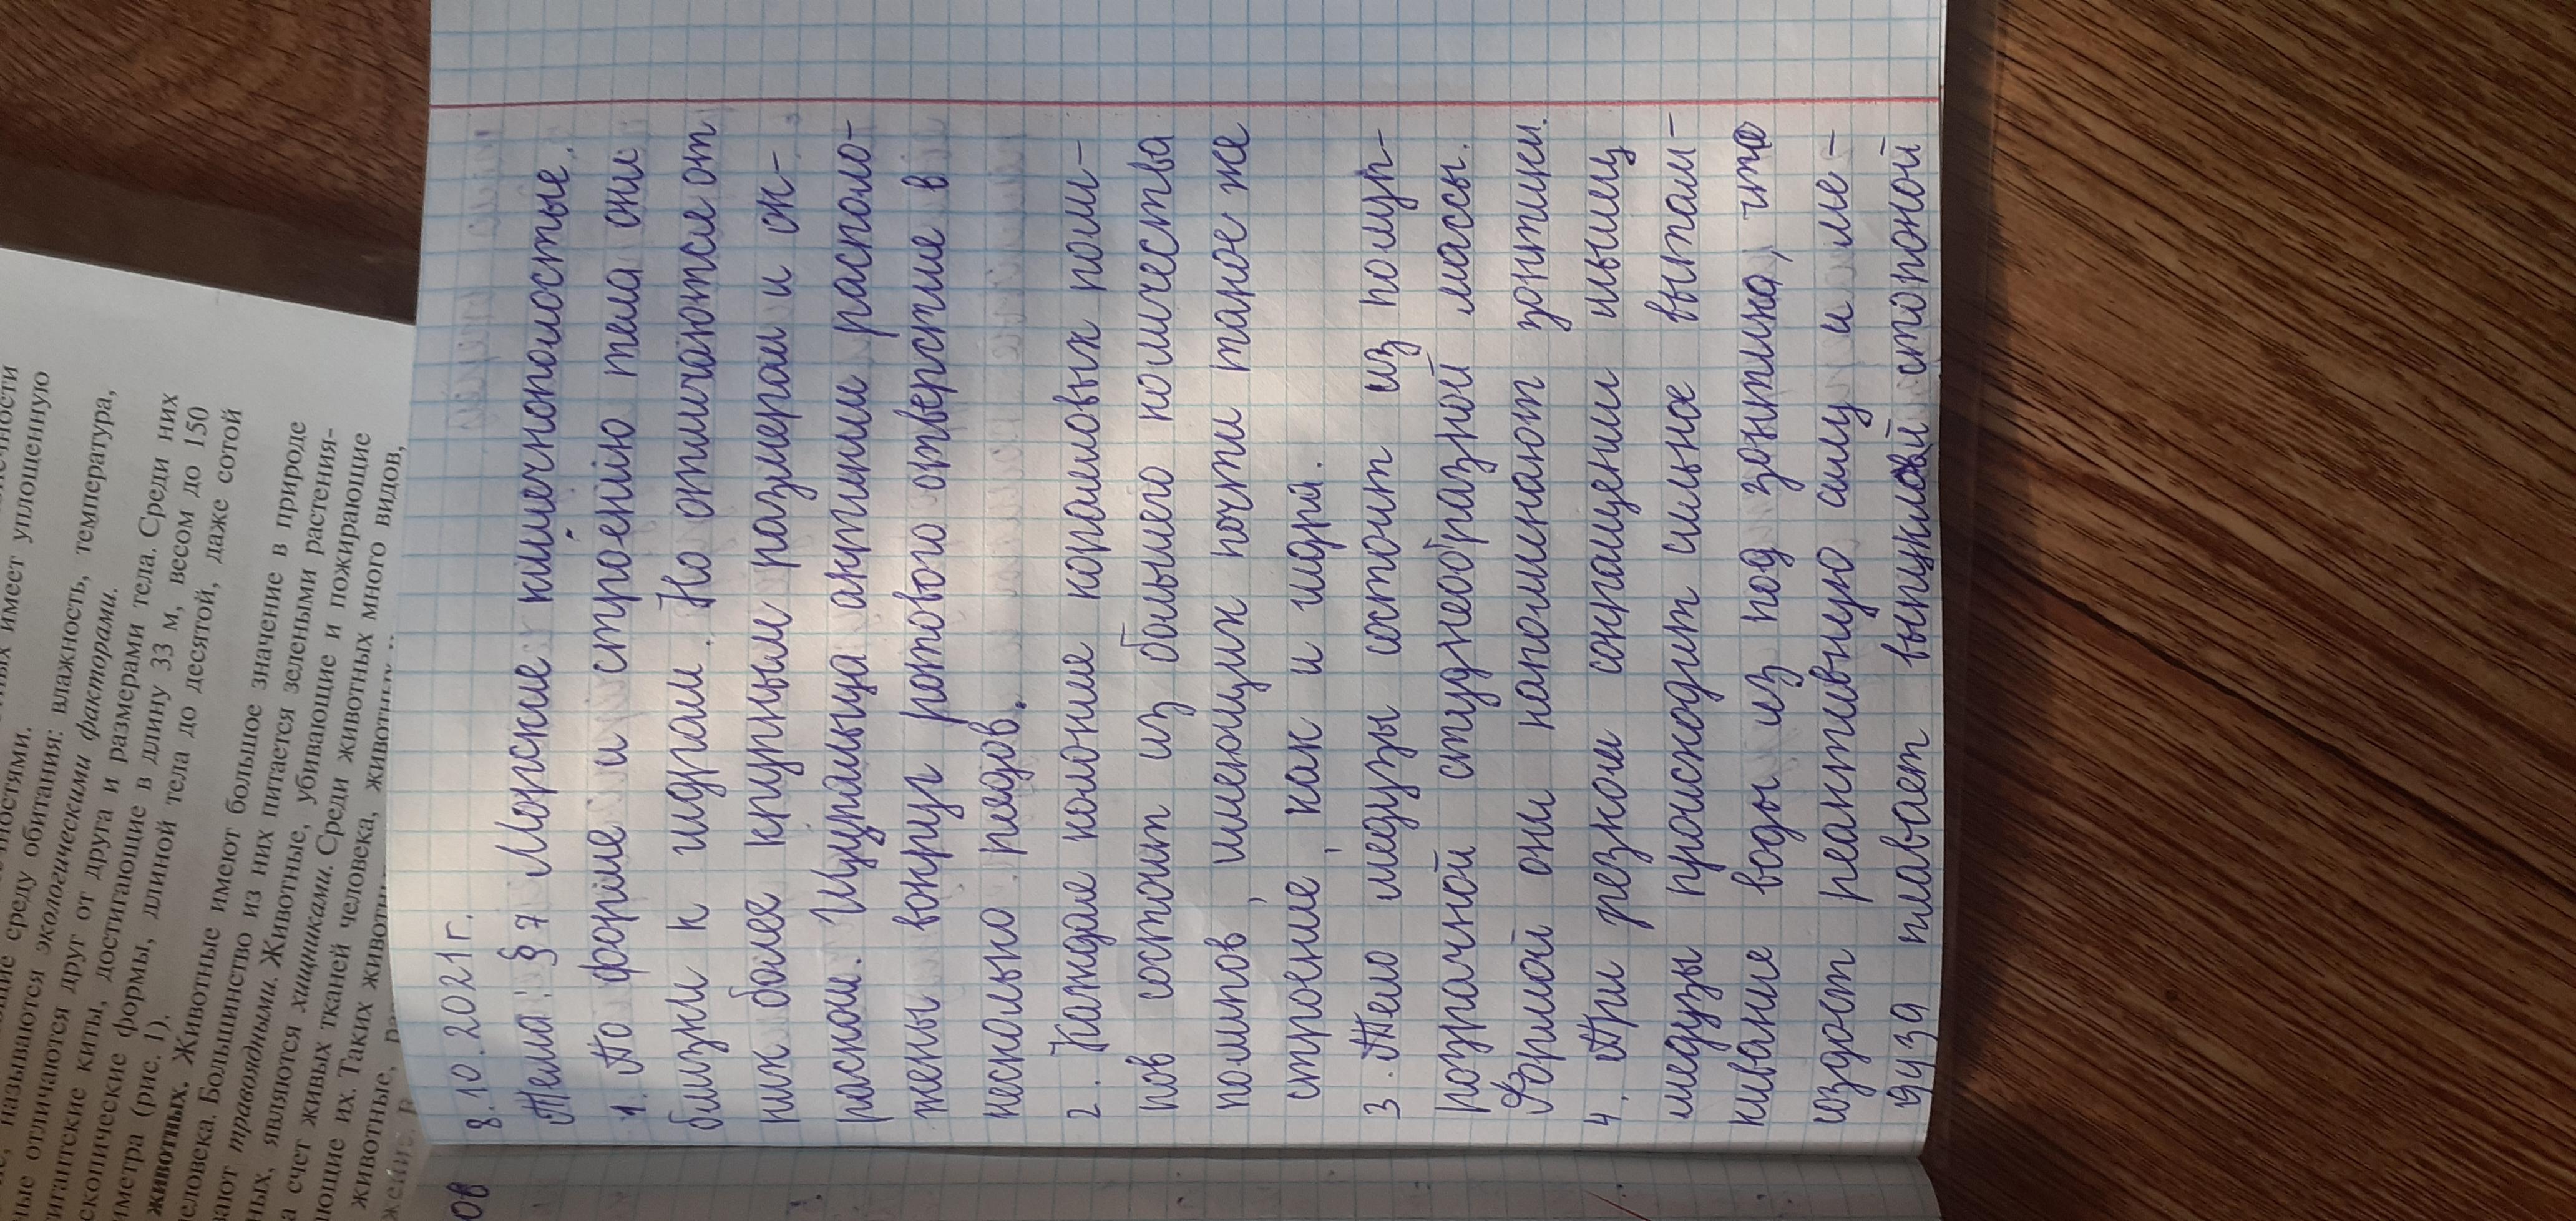 8.10.2021г.
Тема: § 7 Морские кишечнополостные.
1. По форме и строению тела они
близки к гидрам. Но отличаются от
них более крупным размерам и ок-
раском. Щупальца актинии располо-
жены вокруг ротового отверстие в
несколько рядов.
2. Каждая колоние коралловых поли-
пов состоит из большего количества
полипов, имеющих почти такое же
строение, как и гидра.
3. Тело медузы состоит из полуп-
розрачной студнеобразной массы.
Формой они напоминают зонтики.
4. При резком сокращении мышц
медузы происходит сильное вытал-
кивание воды из под зонтика, что
создаст реактивную силу и ме-
дуза плавает выпуклой стороной
ов
имеет уплощенную
среду обитания: влажность, температура,
называются экологическими факторами.
отличаются друг от друга и размерами тела. Среди них
гигантские киты, достигающие в длину 33 м, весом до 150
скопические формы, длиной тела до десятой, даже сотой
иметра (рис. 1).
животных. Животные имеют большое значение в природе
человека. Большинство из них питается зелеными растения-
вают травоядными. Животные, убивающие и пожирающие
ных, являются хищниками. Среди животных и пожирающие
а счет живых тканей человека, животных много видов,
ющие их. Таких
животные,